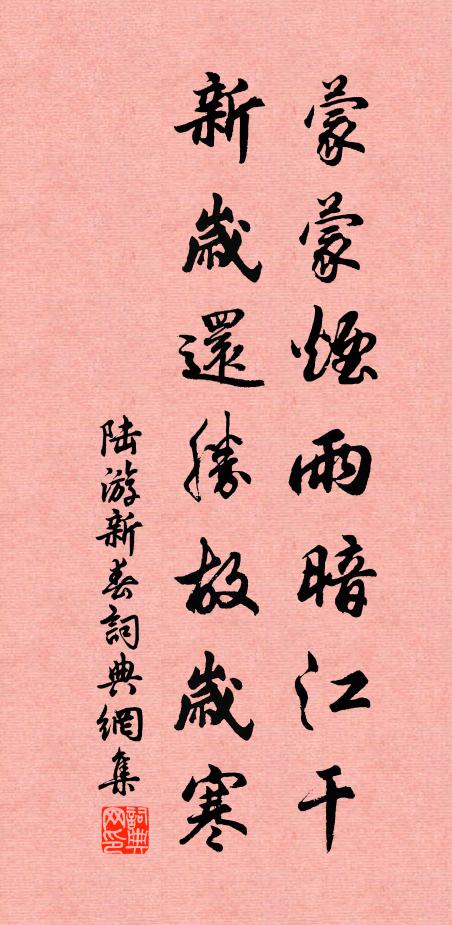 蒙蒙煙雨暗江干
新歲還勝故歲寒
陆游新春詞典網集
詞典网印